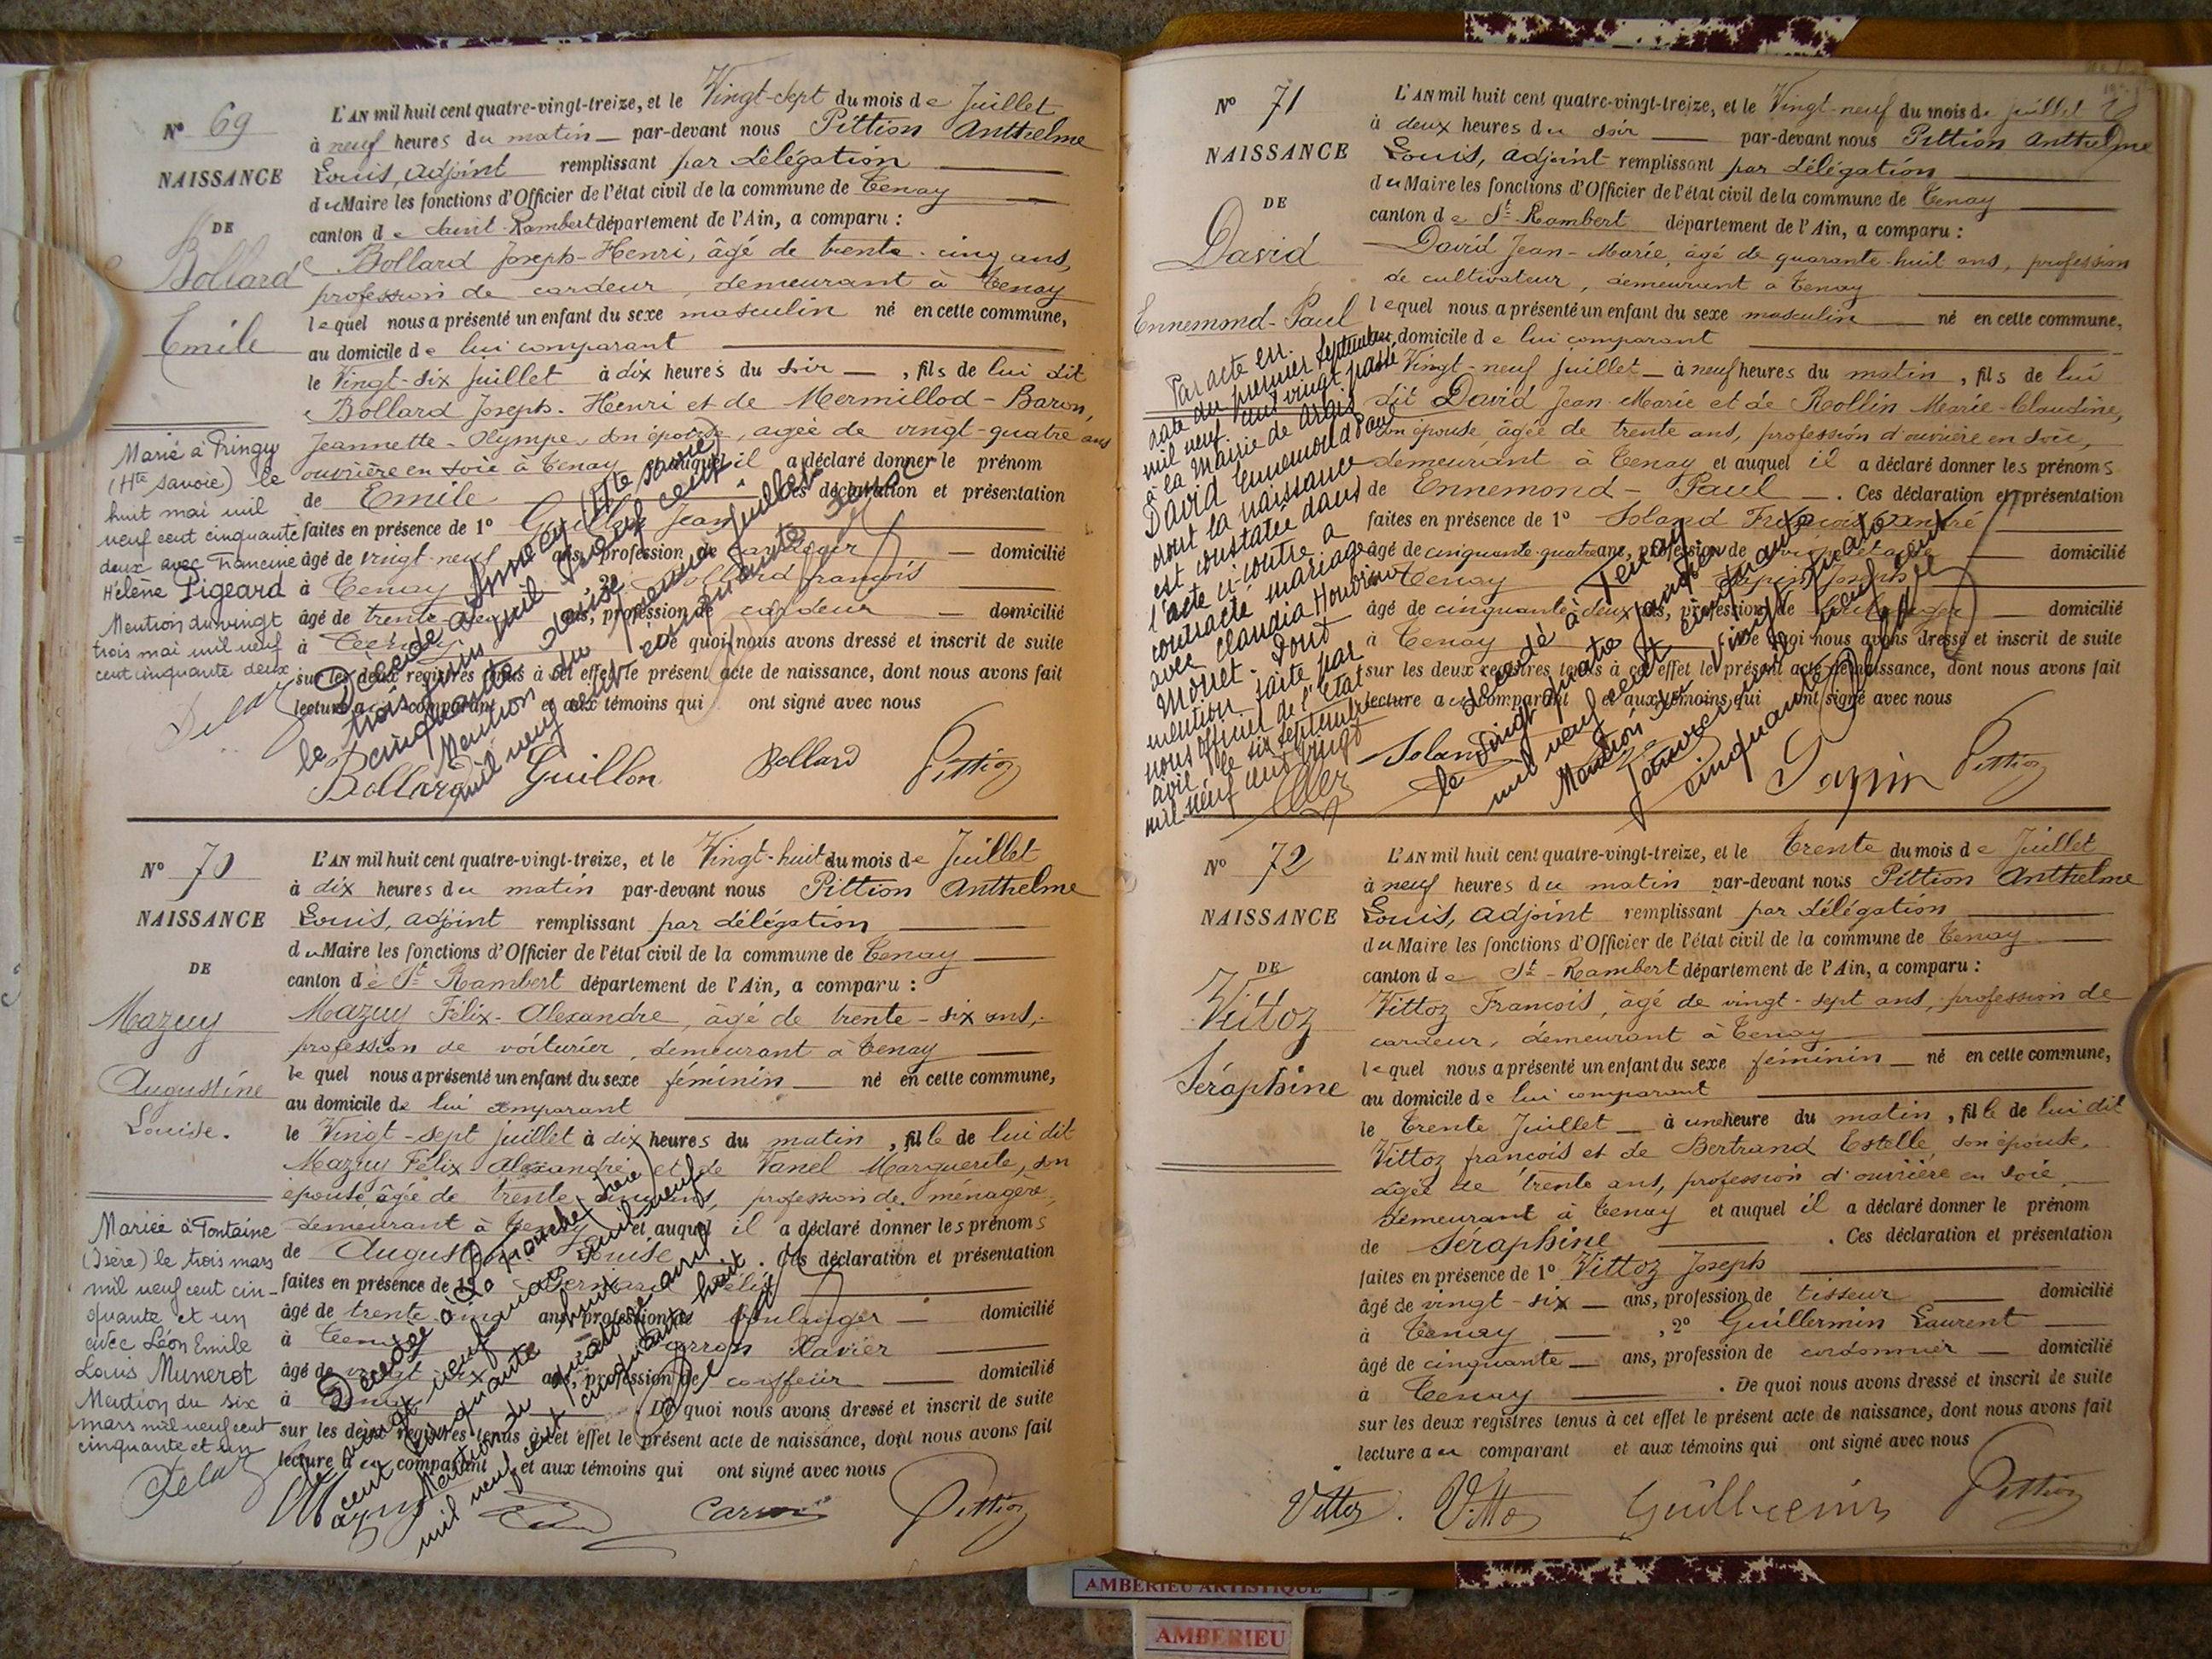 N° 69
NAISSANCE
DE
Bollard
Emile
L'AN mil huit cent quatre-vingt-treize, et le Vingt-sept du mois de Juillet
à neuf heures du matin par-devant nous Pittion Anthelme
Louis, adjoint remplissant par délégation
du Maire les fonctions d'Officier de l'état civil de la commune de Tenay
canton de Saint-Rambert département de l'Ain, a comparu :
Bollard Joseph-Henri, âgé de trente-cinq ans,
profession de cardeur, demeurant à Tenay
lequel nous a présenté un enfant du sexe masculin né en cette commune,
au domicile de lui comparant
le Vingt-six Juillet à dix heures du soir, fils de lui dit
Bollard Joseph-Henri et de Mermillod-Baron,
Jeannette-Olympe, son épouse, agée de vingt-quatre ans
ouvrière en soie à Tenay et auquel il a déclaré donner le prénom
de Emile Ces déclaration et présentation
faites en présence de 1° Guillon Jean
âgé de vingt-neuf ans, profession de domicilié
à Tenay 2° Bollard françois
âgé de trente ans, profession de cardeur domicilié
à Tenay De quoi nous avons dressé et inscrit de suite
sur les deux registres tenus à cet effet le présent acte de naissance, dont nous avons fait
lecture au comparant et aux témoins qui ont signé avec nous
Bollard Guillon Bollard Pittion
Marié à Pringy
(Hte Savoie) le
huit mai mil
neuf cent cinquante
deux avec Francine
Hélène Pigeard
Mention du vingt
trois mai mil neuf
cent cinquante deux
Décédé à Annecy (Hte Savoie)
le trois juin mil neuf cent
cinquante seize
Mention du premier juillet
mil neuf cent soixante seize
N° 70
NAISSANCE
DE
Mazuy
Augustine
Louise.
L'AN mil huit cent quatre-vingt-treize, et le Vingt-huit du mois de Juillet
à dix heures du matin par-devant nous Pittion Anthelme
Louis, adjoint remplissant par délégation
du Maire les fonctions d'Officier de l'état civil de la commune de Tenay
canton de St-Rambert département de l'Ain, a comparu :
Mazuy Félix-Alexandre, âgé de trente-six ans,
profession de voiturier, demeurant à Tenay
lequel nous a présenté un enfant du sexe féminin né en cette commune,
au domicile de lui comparant
le Vingt-sept juillet à dix heures du matin, fille de lui dit
Mazuy Félix Alexandre et de Vanel Marguerite, son
épouse, âgée de trente cinq ans, profession de ménagère,
demeurant à Tenay et auquel il a déclaré donner les prénoms
de Augustine Louise. Ces déclaration et présentation
faites en présence de 1° Bernard Félix
âgé de trente-cinq ans, profession de boulanger domicilié
à Tenay Carron Xavier
âgé de vingt-six ans, profession de coiffeur domicilié
à Tenay. De quoi nous avons dressé et inscrit de suite
sur les deux registres tenus à cet effet le présent acte de naissance, dont nous avons fait
lecture au comparant et aux témoins qui ont signé avec nous
Mazuy Carron Pittion
Mariée à Fontaine
(Isère) le trois mars
mil neuf cent cin-
quante et un
avec Léon Emile
Louis Munerot
Mention du six
mars mil neuf cent
cinquante et un
Décédée à La Tronche (Isère)
le vingt neuf mars mil neuf
cent cinquante huit
Mention du quatorze avril
mil neuf cent cinquante huit
N° 71
NAISSANCE
DE
David
Ennemond-Paul
L'AN mil huit cent quatre-vingt-treize, et le Vingt-neuf du mois de juillet
à deux heures du soir par-devant nous Pittion Anthelme
Louis, adjoint remplissant par délégation
du Maire les fonctions d'Officier de l'état civil de la commune de Tenay
canton de St-Rambert département de l'Ain, a comparu :
David Jean-Marie, âgé de quarante-huit ans, profession
de cultivateur, demeurant à Tenay
lequel nous a présenté un enfant du sexe masculin né en cette commune,
domicile de lui comparant
Vingt-neuf juillet à neuf heures du matin, fils de lui
dit David Jean-Marie et de Rollin Marie-Claudine,
son épouse, âgée de trente ans, profession d'ouvrière en soie,
demeurant à Tenay et auquel il a déclaré donner les prénoms
de Ennemond-Paul. Ces déclaration et présentation
faites en présence de 1° Soland François André
âgé de cinquante-quatre ans, profession de domicilié
Tenay Sapin Joseph
âgé de cinquante-deux ans, profession de boulanger domicilié
à Tenay De quoi nous avons dressé et inscrit de suite
sur les deux registres tenus à cet effet le présent acte de naissance, dont nous avons fait
lecture au comparant et aux témoins qui ont signé avec nous
Soland Sapin Pittion
Par acte en
date du premier septembre
mil neuf cent vingt, passé
à la Mairie de Argis
David Ennemond Paul
dont la naissance
est constatée dans
l'acte ci-contre a
contracté mariage
avec Claudia
Monet. Dont
mention faite par
nous officier de l'état
civil le six septembre
mil neuf cent vingt
Décédé à Tenay
le vingt quatre janvier
mil neuf cent cinquante
Mention du vingt quatre
Janvier mil neuf cent
cinquante
N° 72
NAISSANCE
DE
Vittoz
Séraphine
L'AN mil huit cent quatre-vingt-treize, et le Trente du mois de Juillet
à neuf heures du matin par-devant nous Pittion Anthelme
Louis, adjoint remplissant par délégation
du Maire les fonctions d'Officier de l'état civil de la commune de Tenay
canton de St-Rambert département de l'Ain, a comparu :
Vittoz François, âgé de vingt-sept ans, profession de
cardeur, demeurant à Tenay
lequel nous a présenté un enfant du sexe féminin né en cette commune,
au domicile de lui comparant
le Trente Juillet à une heure du matin, fille de lui dit
Vittoz françois et de Bertrand Estelle, son épouse,
âgée de trente ans, profession d'ouvrière en soie
demeurant à Tenay et auquel il a déclaré donner le prénom
de Séraphine. Ces déclaration et présentation
faites en présence de 1° Vittoz Joseph
âgé de vingt-six ans, profession de tisseur domicilié
à Tenay, 2° Guillermin Laurent
âgé de cinquante ans, profession de cordonnier domicilié
à Tenay. De quoi nous avons dressé et inscrit de suite
sur les deux registres tenus à cet effet le présent acte de naissance, dont nous avons fait
lecture au comparant et aux témoins qui ont signé avec nous
Vittoz. Vittoz Guillermin Pittion
AMBERIEU ARTISTIQUE
AMBERIEU